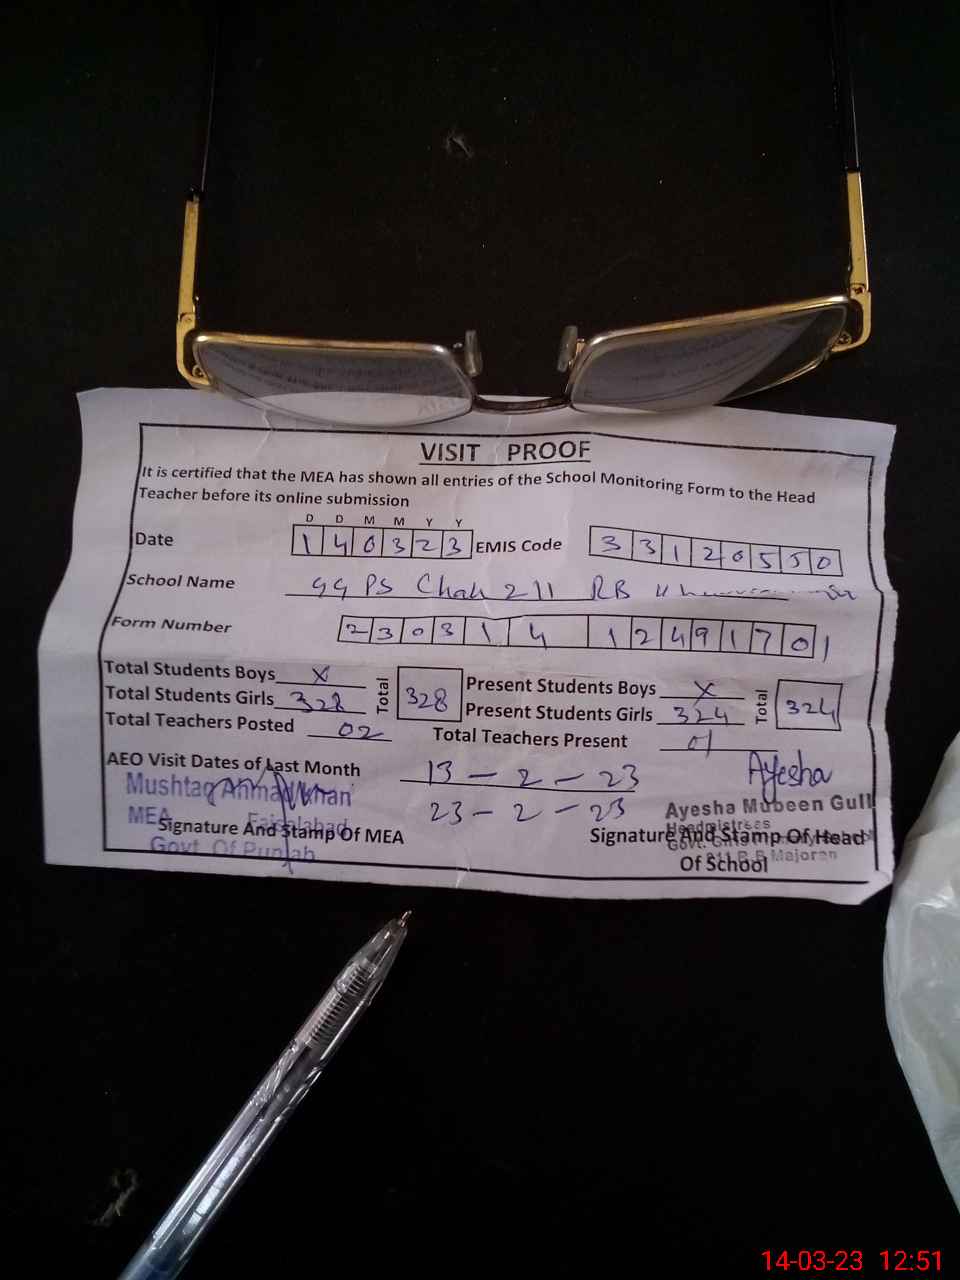 VISIT PROOF
It is certified that the MEA has shown all entries of the School Monitoring Form to the Head
Teacher before its online submission
D D M M Y Y
Date 1 4 0 3 2 3 EMIS Code 3 3 1 2 0 5 5 0
School Name GGPS Chak 211 RB
Form Number 2 3 0 3 1 4 1 2 4 9 1 7 0 1
Total Students Boys X Total 328 Present Students Boys X Total 324
Total Students Girls 328 Present Students Girls 324
Total Teachers Posted 02 Total Teachers Present 01
AEO Visit Dates of Last Month 13 - 2 - 23 Ayesha
23 - 2 - 23
Mushtaq Ahmad Khan
MEA Faisalabad
Govt. Of Punjab
Signature And Stamp Of MEA
Ayesha Mubeen Gull
Headmistress
Govt. Girls
211 R.B Majoran
Signature And Stamp Of Head
Of School
14-03-23 12:51